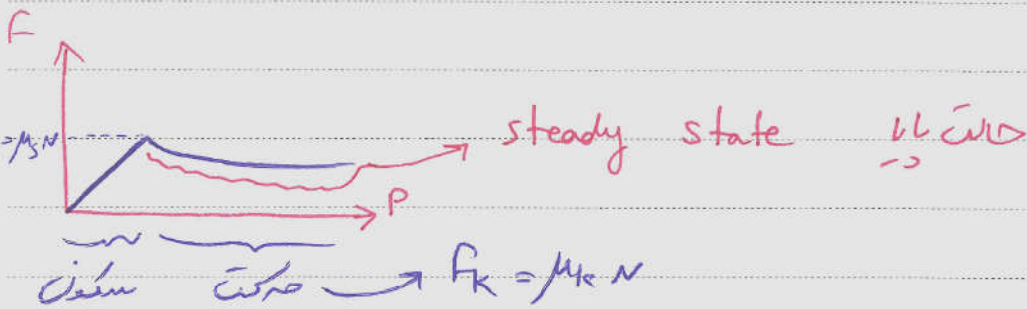 F
=μsN
steady state حالت پایا
P
سکون حرکت
Fk = μk N